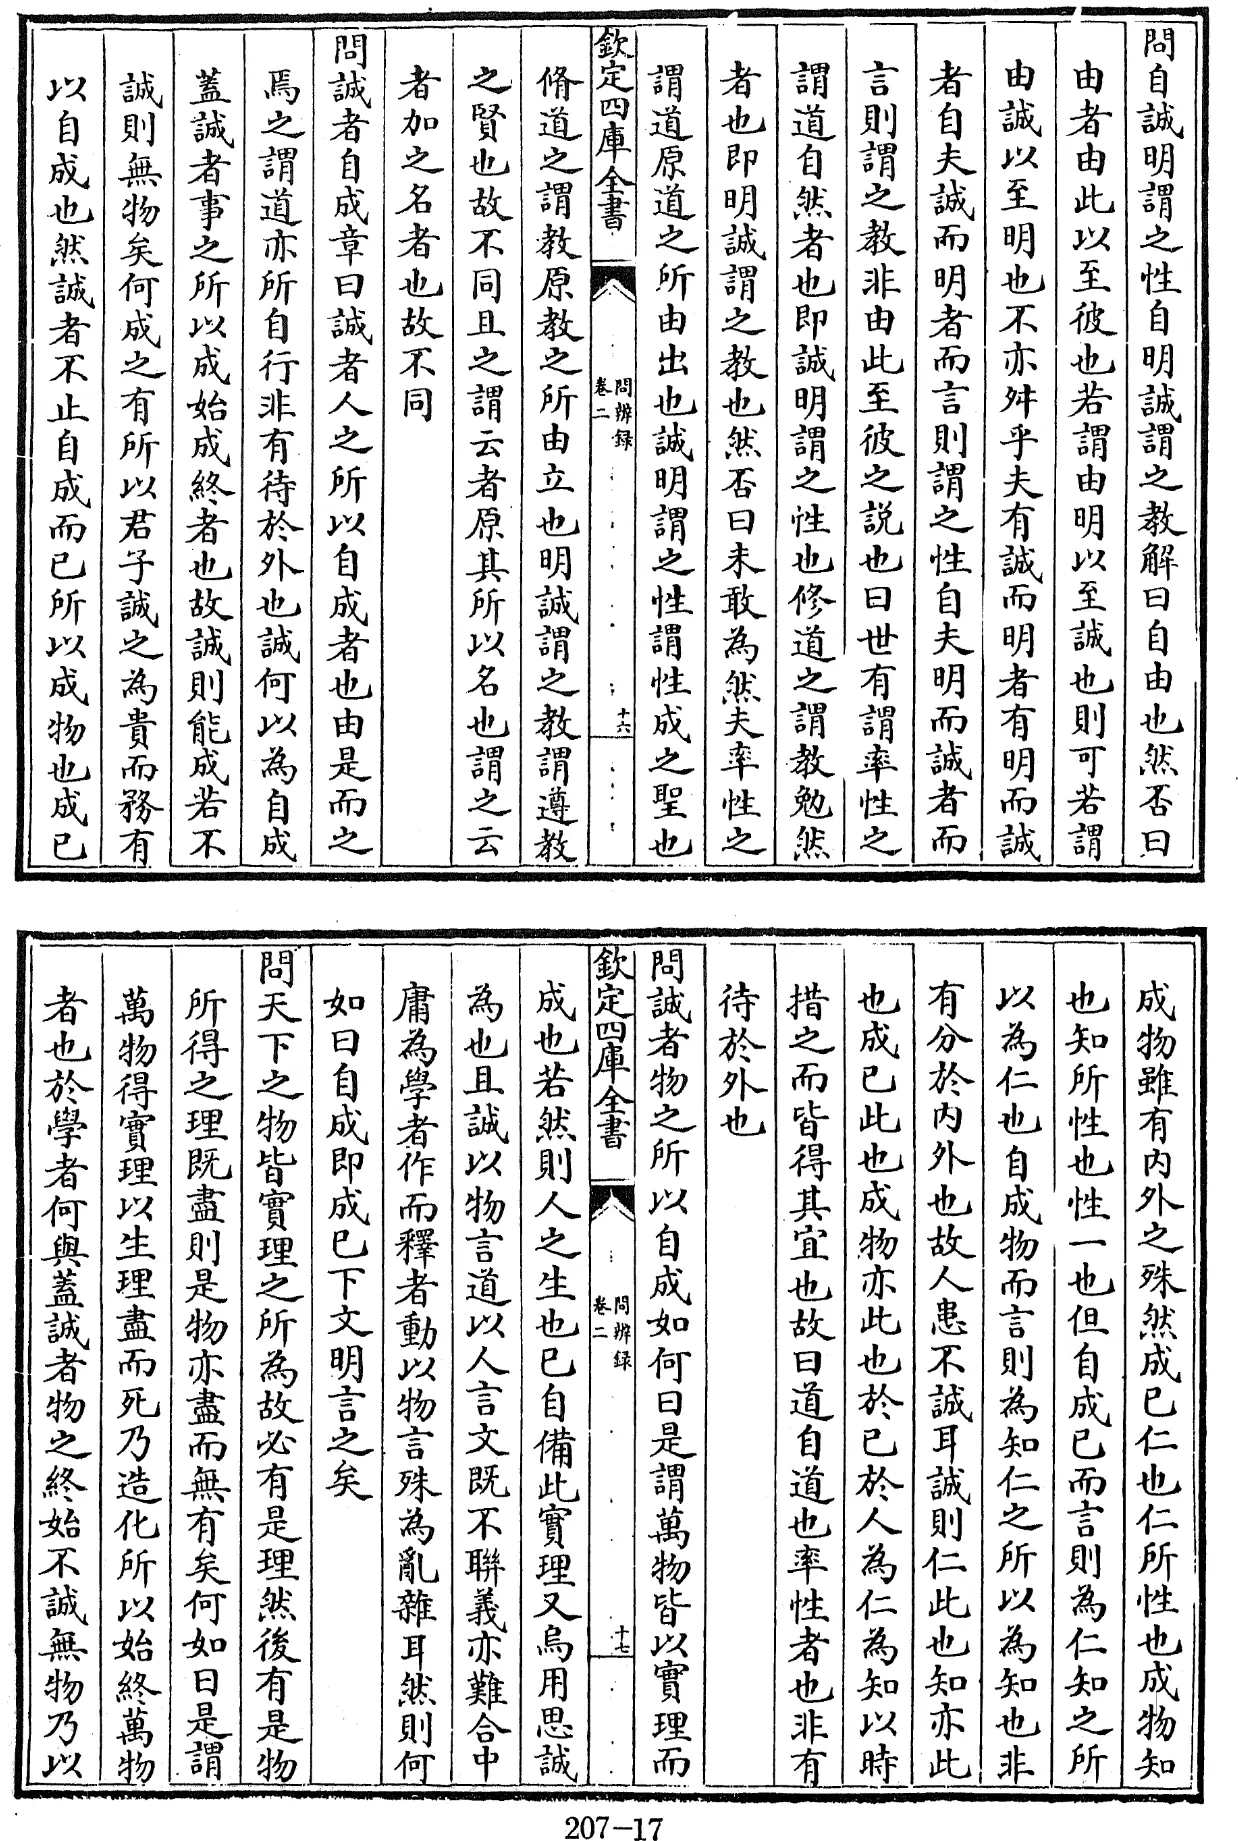 問自誠明謂之性自明誠謂之教解曰自由也然否曰
由者由此以至彼也若謂由明以至誠也則可若謂
由誠以至明也不亦舛乎夫有誠而明者有明而誠
者自夫誠而明者而言則謂之性自夫明而誠者而
言則謂之教非由此至彼之説也曰世有謂率性之
謂道自然者也即誠明謂之性也修道之謂教勉然
者也即明誠謂之教也然否曰未敢為然夫率性之
謂道原道之所由出也誠明謂之性謂性成之聖也
欽定四庫全書
問辨録
卷二
十六
脩道之謂教原教之所由立也明誠謂之教謂遵教
之賢也故不同且之謂云者原其所以名也謂之云
者加之名者也故不同
問誠者自成章曰誠者人之所以自成者也由是而之
焉之謂道亦所自行非有待於外也誠何以為自成
蓋誠者事之所以成始成終者也故誠則能成若不
誠則無物矣何成之有所以君子誠之為貴而務有
以自成也然誠者不止自成而已所以成物也成已
成物雖有内外之殊然成已仁也仁所性也成物知
也知所性也性一也但自成已而言則為仁知之所
以為仁也自成物而言則為知仁之所以為知也非
有分於内外也故人患不誠耳誠則仁此也知亦此
也成已此也成物亦此也於已於人為仁為知以時
措之而皆得其宜也故曰道自道也率性者也非有
待於外也
問誠者物之所以自成如何曰是謂萬物皆以實理而
欽定四庫全書
問辨録
卷二
十七
成也若然則人之生也已自備此實理又烏用思誠
為也且誠以物言道以人言文既不聨義亦難合中
庸為學者作而釋者動以物言殊為亂雜耳然則何
如曰自成即成已下文明言之矣
問天下之物皆實理之所為故必有是理然後有是物
所得之理既盡則是物亦盡而無有矣何如曰是謂
萬物得實理以生理盡而死乃造化所以始終萬物
者也於學者何與蓋誠者物之終始不誠無物乃以
207-17